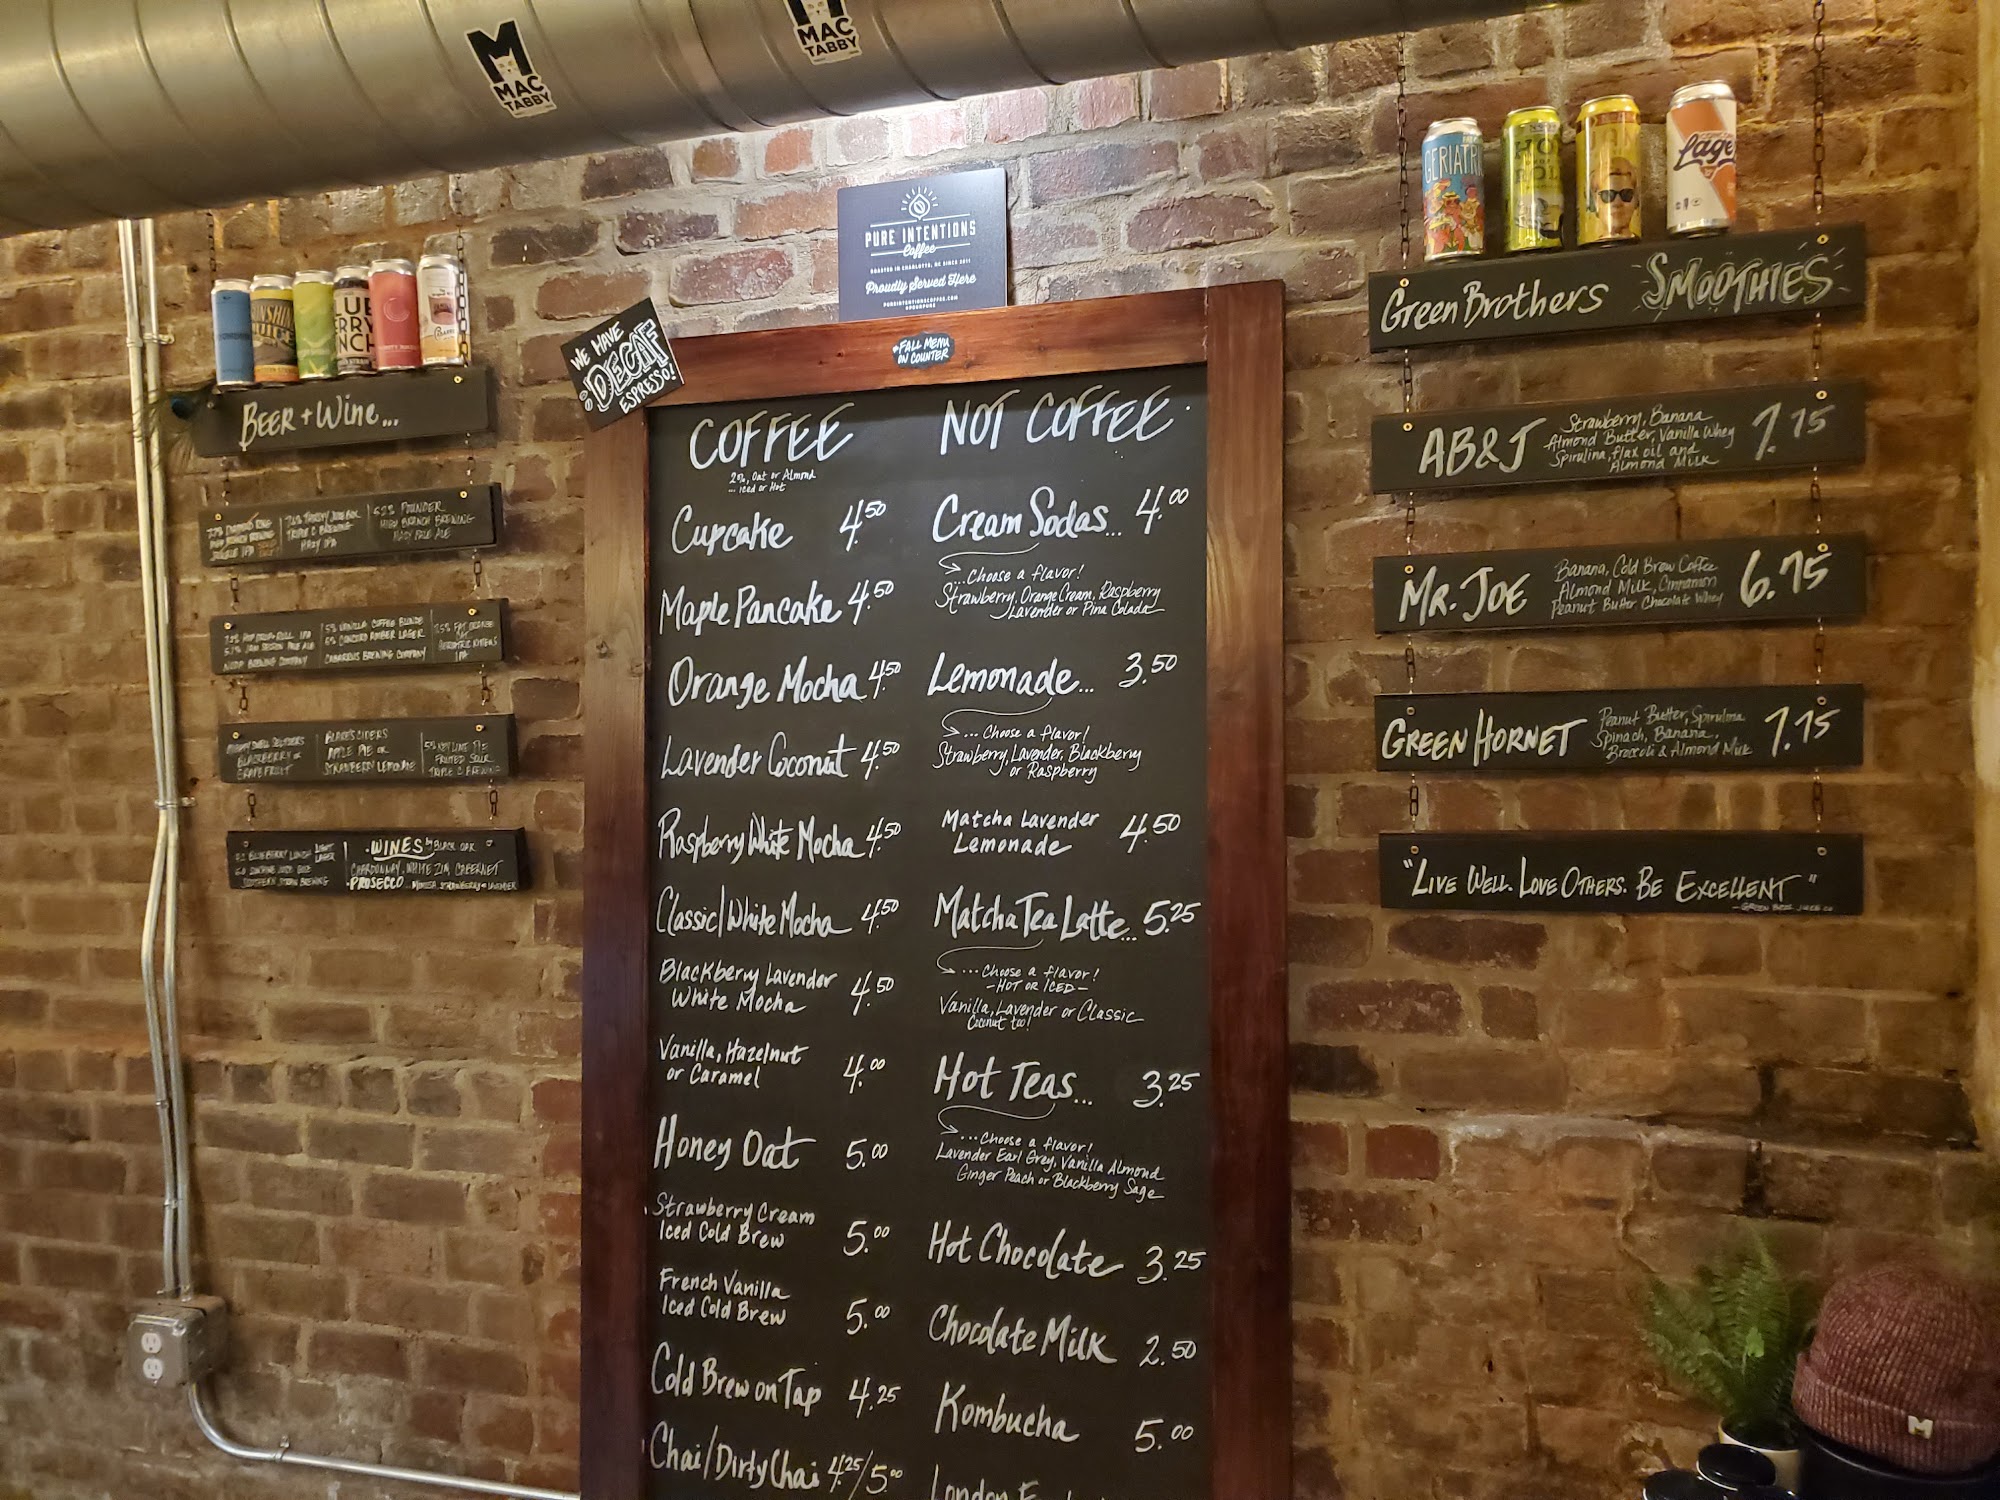 MAC
TABBY
MAC
TABBY
PURE INTENTIONS
Coffee
ROASTED IN CHARLOTTE, NC SINCE 2011
Proudly Served Here
PUREINTENTIONSCOFFEE.COM
WE HAVE
DECAF
ESPRESSO!
*FALL MENU
ON COUNTER
BEER + WINE...
HIGH BRANCH BREWING
TRIPLE C BREWING
HAZY IPA
HAZY PALE ALE
5% VANILLA COFFEE BLONDE
CABARRUS BREWING COMPANY
NODA BREWING COMPANY
BLACKBERRY or
GRAPEFRUIT
BLAKE'S CIDERS
APPLE PIE OR
STRAWBERRY LEMONADE
5% KEY LIME PIE
FRUITED SOUR
TRIPLE C BREWING
WINES by BLACK OAK
CHARDONNAY, WHITE ZIN, CABERNET
PROSECCO
COFFEE
2%, Oat or Almond
... Iced or Hot
Cupcake 4.50
Maple Pancake 4.50
Orange Mocha 4.50
Lavender Coconut 4.50
Raspberry White Mocha 4.50
Classic/White Mocha 4.50
Blackberry Lavender
White Mocha 4.50
Vanilla, Hazelnut
or Caramel 4.00
Honey Oat 5.00
Strawberry Cream
Iced Cold Brew 5.00
French Vanilla
Iced Cold Brew 5.00
Cold Brew on Tap 4.25
Chai/Dirty Chai 4.25/5.00
NOT COFFEE
Cream Sodas... 4.00
...Choose a flavor!
Strawberry, Orange Cream, Raspberry
Lavender or Pina Colada
Lemonade... 3.50
... Choose a flavor!
Strawberry, Lavender, Blackberry
or Raspberry
Matcha Lavender
Lemonade 4.50
Matcha Tea Latte... 5.25
... Choose a flavor!
-HOT OR ICED-
Vanilla, Lavender or Classic
Coconut too!
Hot Teas... 3.25
... Choose a flavor!
Lavender Earl Grey, Vanilla Almond
Ginger Peach or Blackberry Sage
Hot Chocolate 3.25
Chocolate Milk 2.50
Kombucha 5.00
London
GERIATRIC
HOP
ROLL
Lager
Green Brothers SMOOTHIES
AB&J
Strawberry, Banana
Almond Butter, Vanilla Whey
Spirulina, flax oil and
Almond Milk
7.75
MR. JOE
Banana, Cold Brew Coffee
Almond Milk, Cinnamon
Peanut Butter Chocolate Whey
6.75
GREEN HORNET
Peanut Butter, Spirulina
Spinach, Banana,
Broccoli & Almond Milk
7.75
"LIVE WELL. LOVE OTHERS. BE EXCELLENT"
M